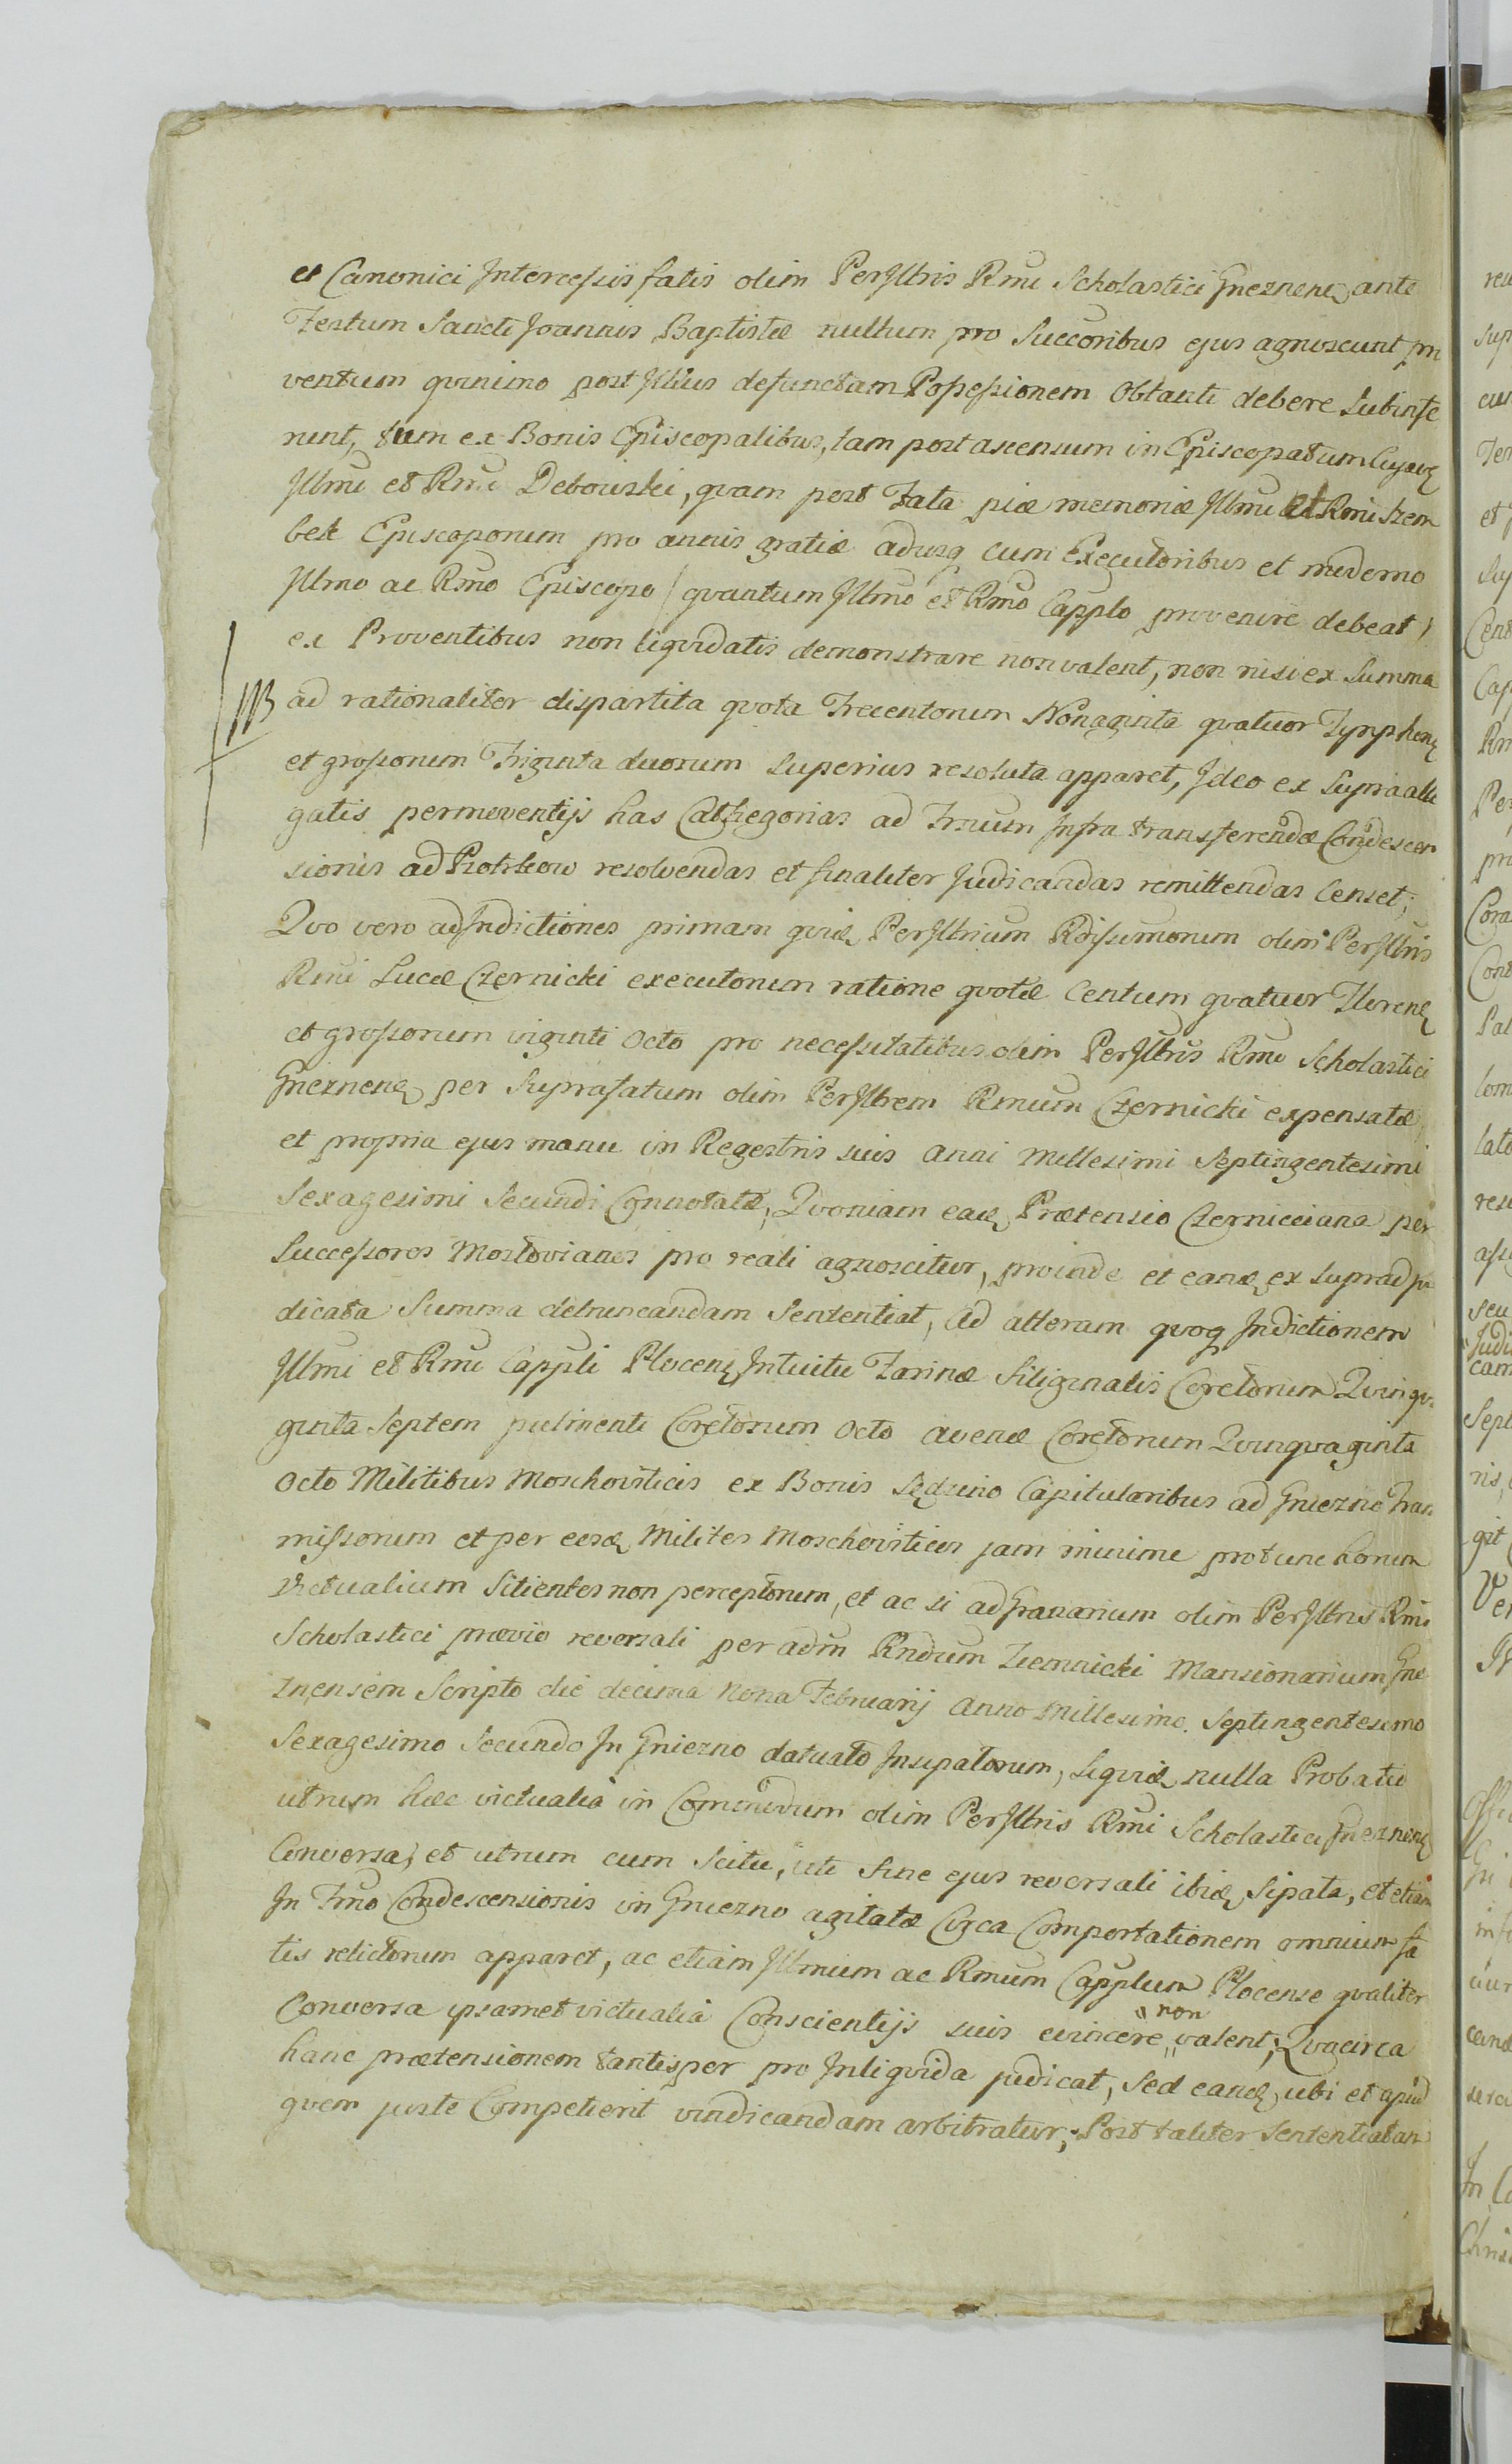 et Canonici Intercessis fatis olim PerIllris Rmi Scholastici Gneznensis ante
Festum Sancti Joannis Baptistæ nullum pro Succoribus ejus agnoscunt pro
ventum quinimo post Illius defunctam Possessionem Obtanti debere Subinfe
runt, tum ex Bonis Episcopalibus, tam post ascensum in Episcopatum Cujaven
Illmi et Rmi Debowski, quam post Fata piæ memoriæ Illmi et Rmi Szem
bek Episcoporum pro annis gratiæ adusq cum Executoribus et moderno
Illmo ac Rmo Episcopo / quantum Illmo et Rmo Capplo provenire debeat /
ex Proventibus non liqvidatis demonstrare non valent, non nisi ex Summa
NB ad rationaliter dispartita qvota Trecentorum Nonaginta qvatuor Tympho
et grossorum Triginta duorum Superius resoluta apparet, Ideo ex Supraalle
gatis permoventijs has Cathegorias ad Trnum Infra transferendæ Condescen
sionis ad Piotrkow resolvendas et finaliter Judicandas remittendas Censet;
Qvo vero ad Indictiones primam qvidem PerIllrium Rdissimorum olim PerIllris
Rmi Lucæ Czernicki executorum ratione qvotæ Centum qvatuor Floreno
et grossorum viginti Octo pro necessitatibus olim PerIllris Rmi Scholastici
Gneznensis per Suprafatum olim PerIllrem Rmum Czernicki expensatæ,
et propria ejus manu in Regestris suis Anni Millesimi Septingentesimi
Sexagesimi Secundi Connotatæ, Qvoniam eadem Prætensio Czernicciana per
Successores Mostovianos pro reali agnoscitur, proinde et eandem ex Supradpræ
dicata Summa detruncandam Sententiat, Ad alteram qvoq Indictionem
Illmi et Rmi Cappli Plocensis Intuitu Farinæ Siliginalis Coretorum Qvinqva
ginta Septem pulmenti Coretorum Octo avenæ Coretorum Qvinqvaginta
Octo Militibus Moschoviticis ex Bonis Sędzino Capitularibus ad Gniezno Tran
missorum et per eosdem Milites Moschoviticos jam minime protunc horum
Victualium Sitientes non perceptorum, et ac si ad Granarium olim PerIllris Rmi
Scholastici prævio reversali per adm Rndum Ziemnicki Mansionarium Gne
znensem Scripto die decima Nona Februarij Anno Millesimo Septingentesimo
Sexagesimo Secundo In Gniezno datuato Insipatorum, Siqvidem nulla Probatio
utrum hæc victualia in Commodum olim PerIllris Rmi Scholastici Gneznensis
Conversa, et utrum cum Scitu, uti Sine ejus reversali ibidem Sipata, et etiam
In Trno Condescensionis in Gniezno agitatæ Circa Comportationem omnium fa
tis relictorum apparet, ac etiam Illmum ac Rmum Capplum Plocense qvaliter
Conversa ipsamet victualia Conscientijs suis evincere non valent, Qvocirca
hanc prætensionem tantisper pro Inliqvida judicat, Sed eandem ubi et apud
qvem juste Competierit vindicandam arbitratur, Post taliter Sententiatam